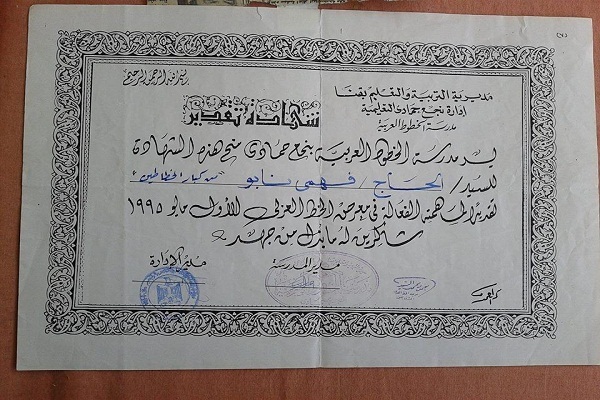 بسم الله الرحمن الرحيم
مديرية التربية والتعليم بقنا
إدارة نجع حمادى التعليمية
مدرسة الخطوط العربية
شهادة تقدير
يسر مدرسة الخطوط العربية بنجع حمادى منح هذه الشهادة
للسيد / الحاج / فهمى نابو "من كبار الخطاطين"
تقديرًا لمساهمته الفعالة فى معرض الخط العربى الأول مايو ١٩٩٥
شاكرين له ما بذل من جهد
مدير المدرسة
مدير الإدارة